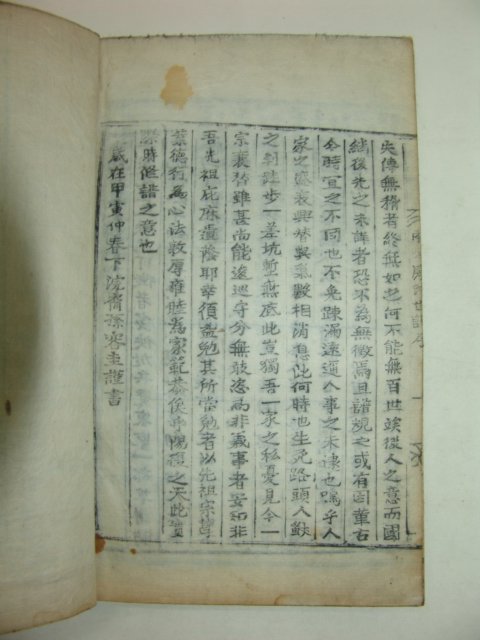 失傳無稽者終無如之何不能無百世後人之意而國
續後先之未詳者恐不為無徵焉且譜規之或有因革古
今時宜之不同也不免踈漏遠邇人事之未逮也嗚乎人
家之盛衰興替與氣數相消息此何時也生克路頭人獸
之判跬步一差坑塹無底此豈獨吾一家之私憂見今一
宗衰替雖甚尚能逡巡守分無敢恣局非義事者安知非
吾先祖庇庥遺蔭耶幸須益勉其所當勉者以先祖宗哲
業德行為心法敦厚雍睦為家範恭俟乎陽復之天此豈
際時修譜之意也
歲在甲寅仲春下沈裔孫 謹書